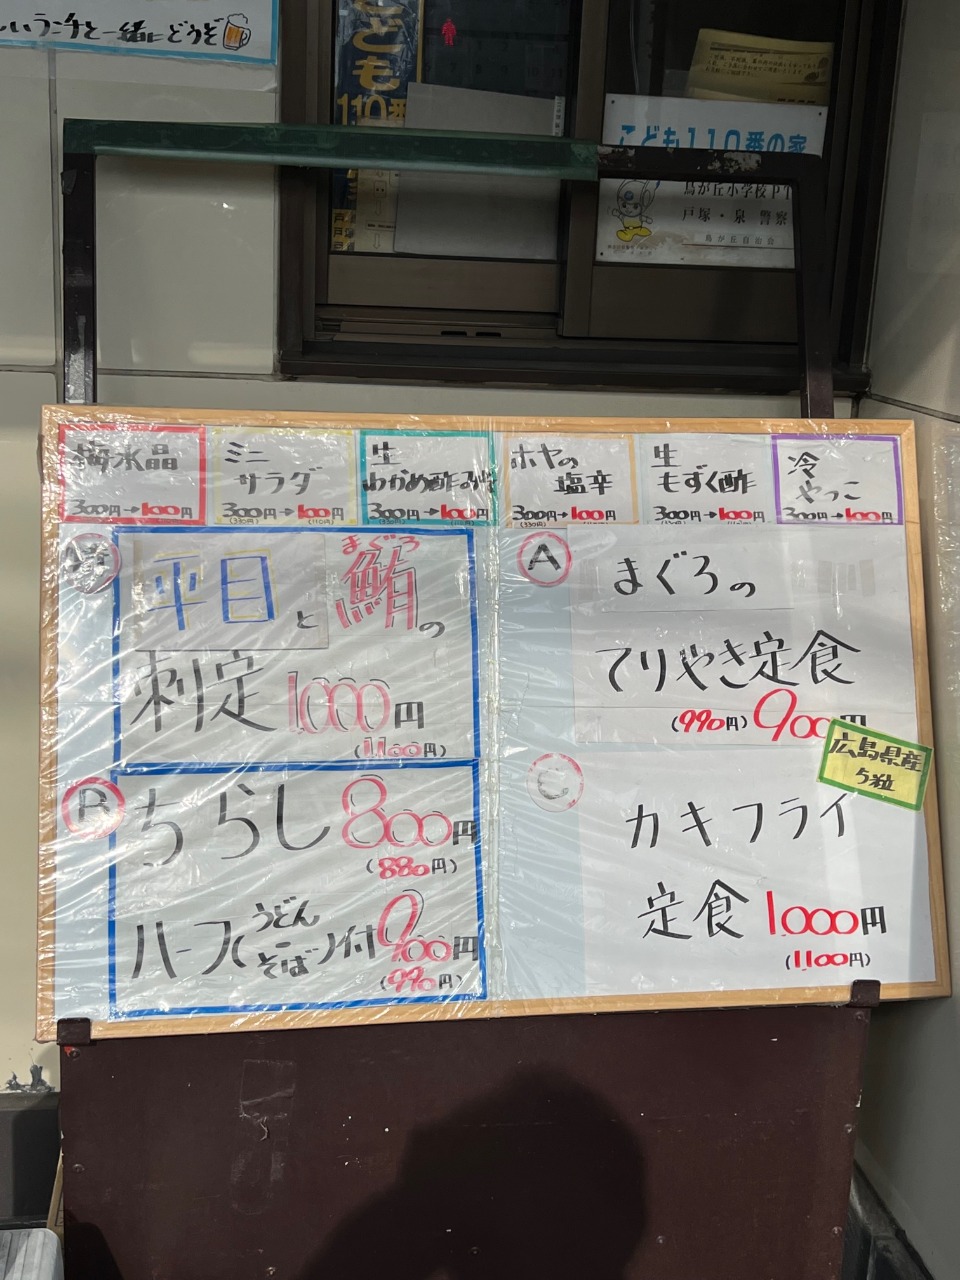 いランチと一緒にどうぞ
こども
110番
こども110番の家
鳥が丘小学校PT
戸塚・泉 警察
鳥が丘自治会
梅水晶
300円→100円
ミニ
サラダ
300円→100円
(330円) (110円)
生
わかめ酢みそ
300円→100円
(330円) (110円)
ホヤの
塩辛
300円→100円
(330円) (110円)
生
もずく酢
300円→100円
(330円) (110円)
冷
やっこ
300円→100円
(330円) (110円)
平目と鮪の
まぐろ
刺定 1000円
(1100円)
B
ちらし 800円
(880円)
ハーフ(うどん
そば)付 900円
(990円)
A
まぐろの
てりやき定食
(990円) 900円
広島県産
5粒
C
カキフライ
定食 1000円
(1100円)